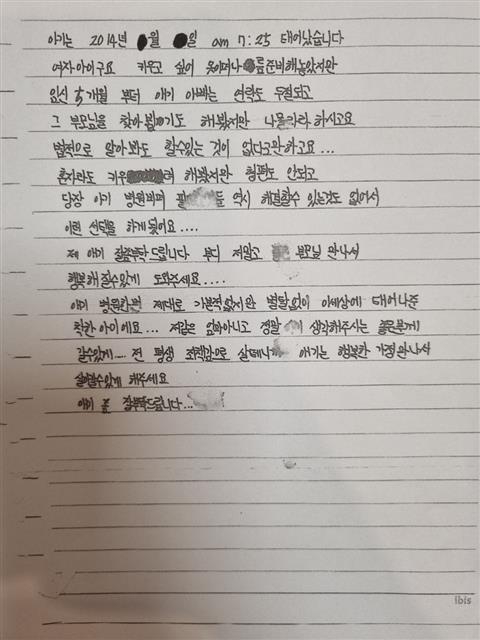 아기는 2014년 월 일 am 7:25 태어났습니다
여자아이구요 키우고 싶어 옷이며나름준비해놓았지만
임신 5개월 부터 애기 아빠는 연락도 두절되고
그 부모님을 찾아봽기도 해봤지만 나몰라라 하시고요
법적으로 알아봐도 할수있는 것이 없다고만하고요...
혼자라도 키우 며 해봤지만 형편도 안되고
당장 아기 병원비며 들 역시 해결할수 있는것도 없어서
이런 선택을 하게됬어요....
제 애기 잘좀부탁드립니다 부디 저말고 부모님 만나서
행복해질수있게 도와주세요....
아기 병원한번 제대로 가본적없지만 별탈없이 이세상에 태어나준
착한 아이에요... 저같은 엄마아니고 정말 생각해주시는 좋은분께
갈수있게.... 전 평생 죄책감으로 살테니까 애기는 행복한 가정만나서
살아갈수있게 해주세요
애기 좀 잘부탁드립니다...
ibis